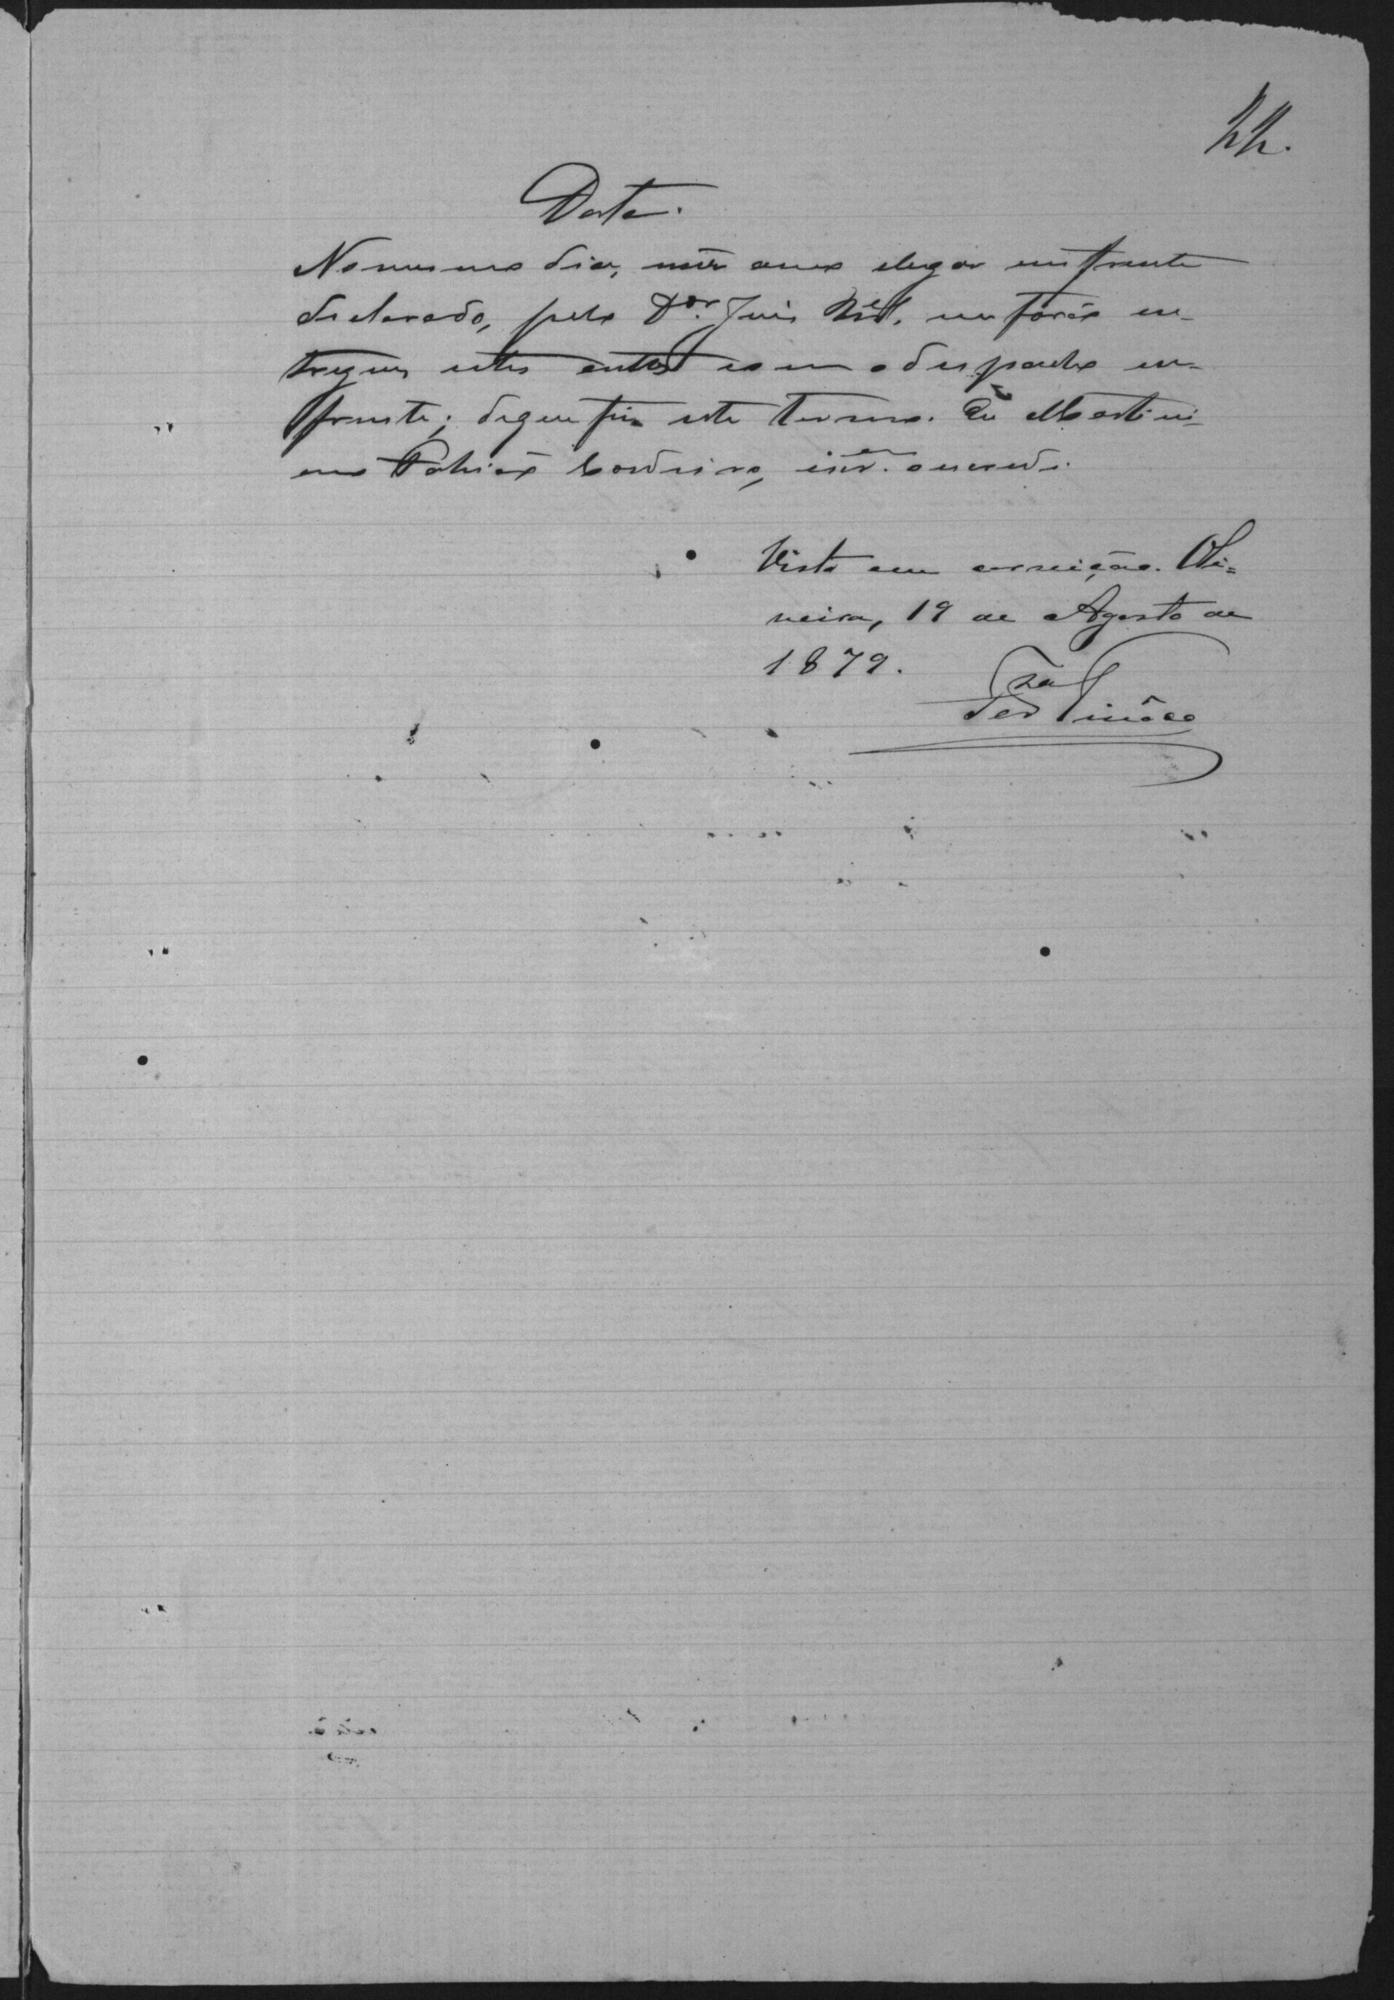 22.
Data.
No mesmo dia, mês anno elugar emfrente
declarado, pelo Dor. Juis Mal. me forão en-
tregues estes autos com o despacho em-
frente; deque fiz este termo. Eu Martini-
ano Cordeiro, escram. o escrevi.
Visto em correição. Oli=
veira, 19 de Agosto de
1879.